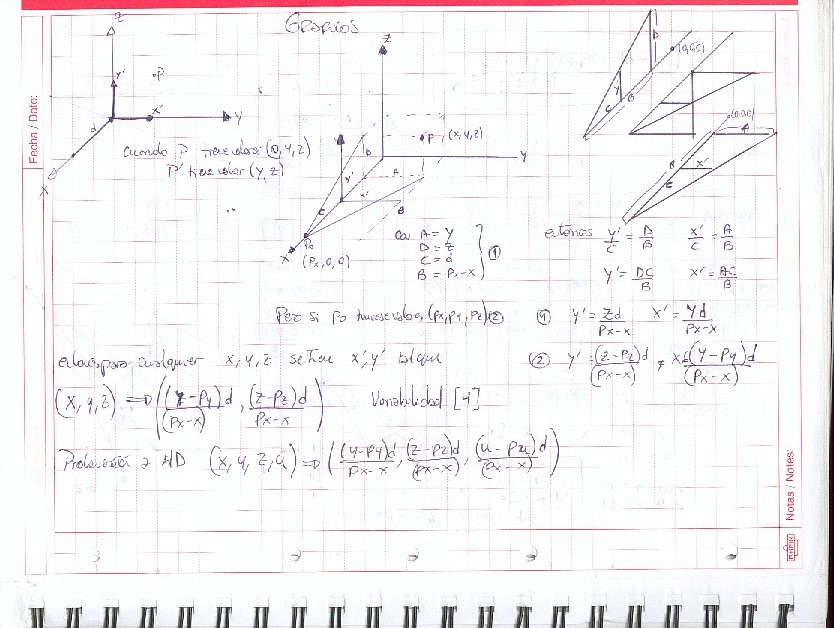 GRAFICOS
Z
y'
P
x'
Y
d
X
Cuando P tiene valores (0, y, z)
P' tiene valor (Y, Z)
Z
P, (x, y, z)
Y
D
A
y'
x'
B
C
Po
X
(Px, 0, 0)
D
y'
C
B
(0,0,0)
A
B
x'
C
Con A = Y
D = z
C = d
B = Px - x
①
entonces y'/C = D/B x'/C = A/B
y' = DC/B x' = AC/B
Pero si po tuviese valores (px, py, pz) ②
① y' = zd/(Px-x) x' = Yd/(Px-x)
② y' = (z-Pz)d/(Px-x) , x' = (Y-Py)d/(Px-x)
entonces para cualquier x, y, z se tiene x', y' tal que
(x, y, z) => ((y-Py)d/(Px-x), (z-Pz)d/(Px-x)) Variabilidad [4]
Proyección a 4D (x, y, z, u) => ((y-Py)d/(Px-x), (z-Pz)d/(Px-x), (u-Pu)d/(Px-x))
Fecha / Date:
Notas / Notes: